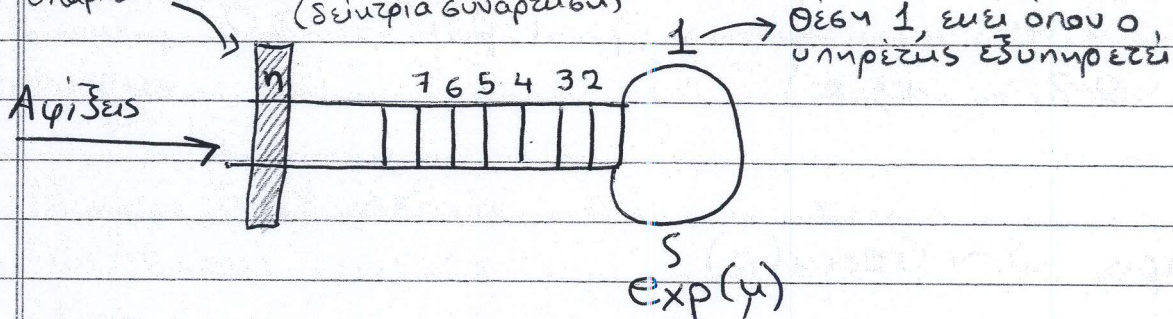 (δείκτρια συνάρτηση)
1 → Θέση 1, εκεί όπου ο
υπηρέτης εξυπηρετεί
n
7 6 5 4 3 2
Αφίξεις
S
exp(μ)